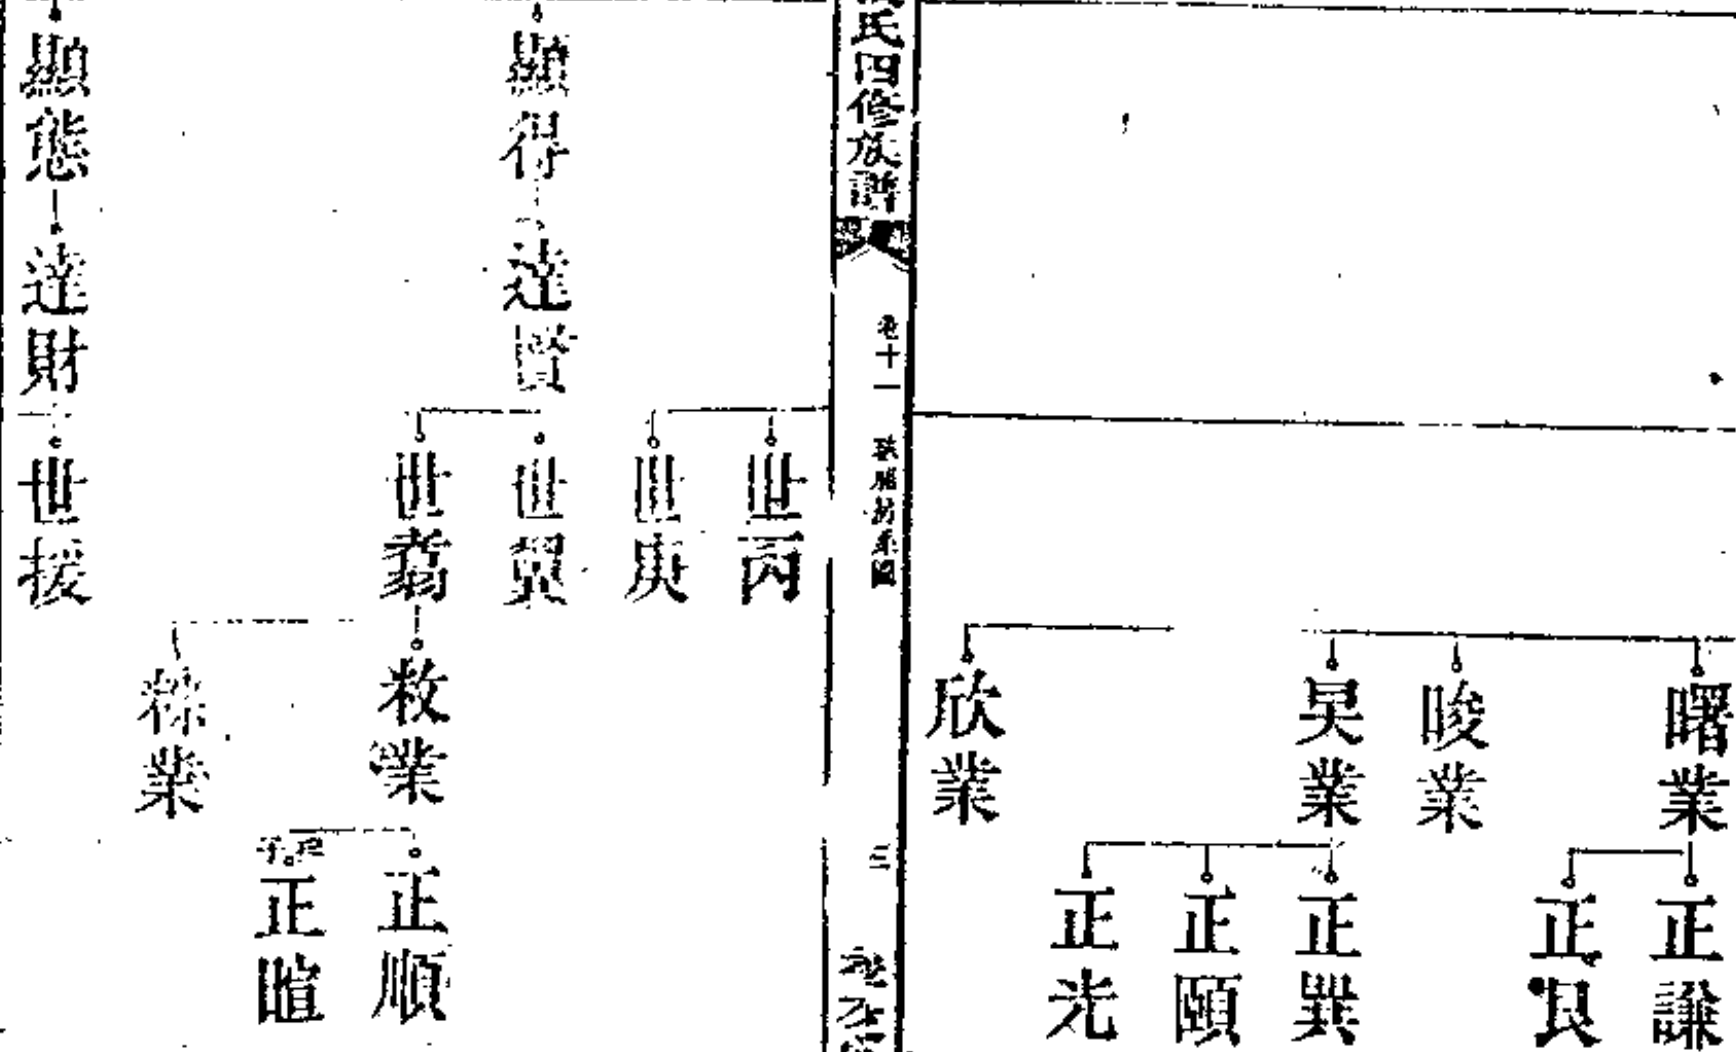 曙業
正謙
正艮
晙業
昊業
正巽
正頤
正光
欣業
氏四修族譜
卷十一
三
世丙
世庚
顯得
達賢
世翼
世翥
敉業
正順
正暄
顯態
達財
世援